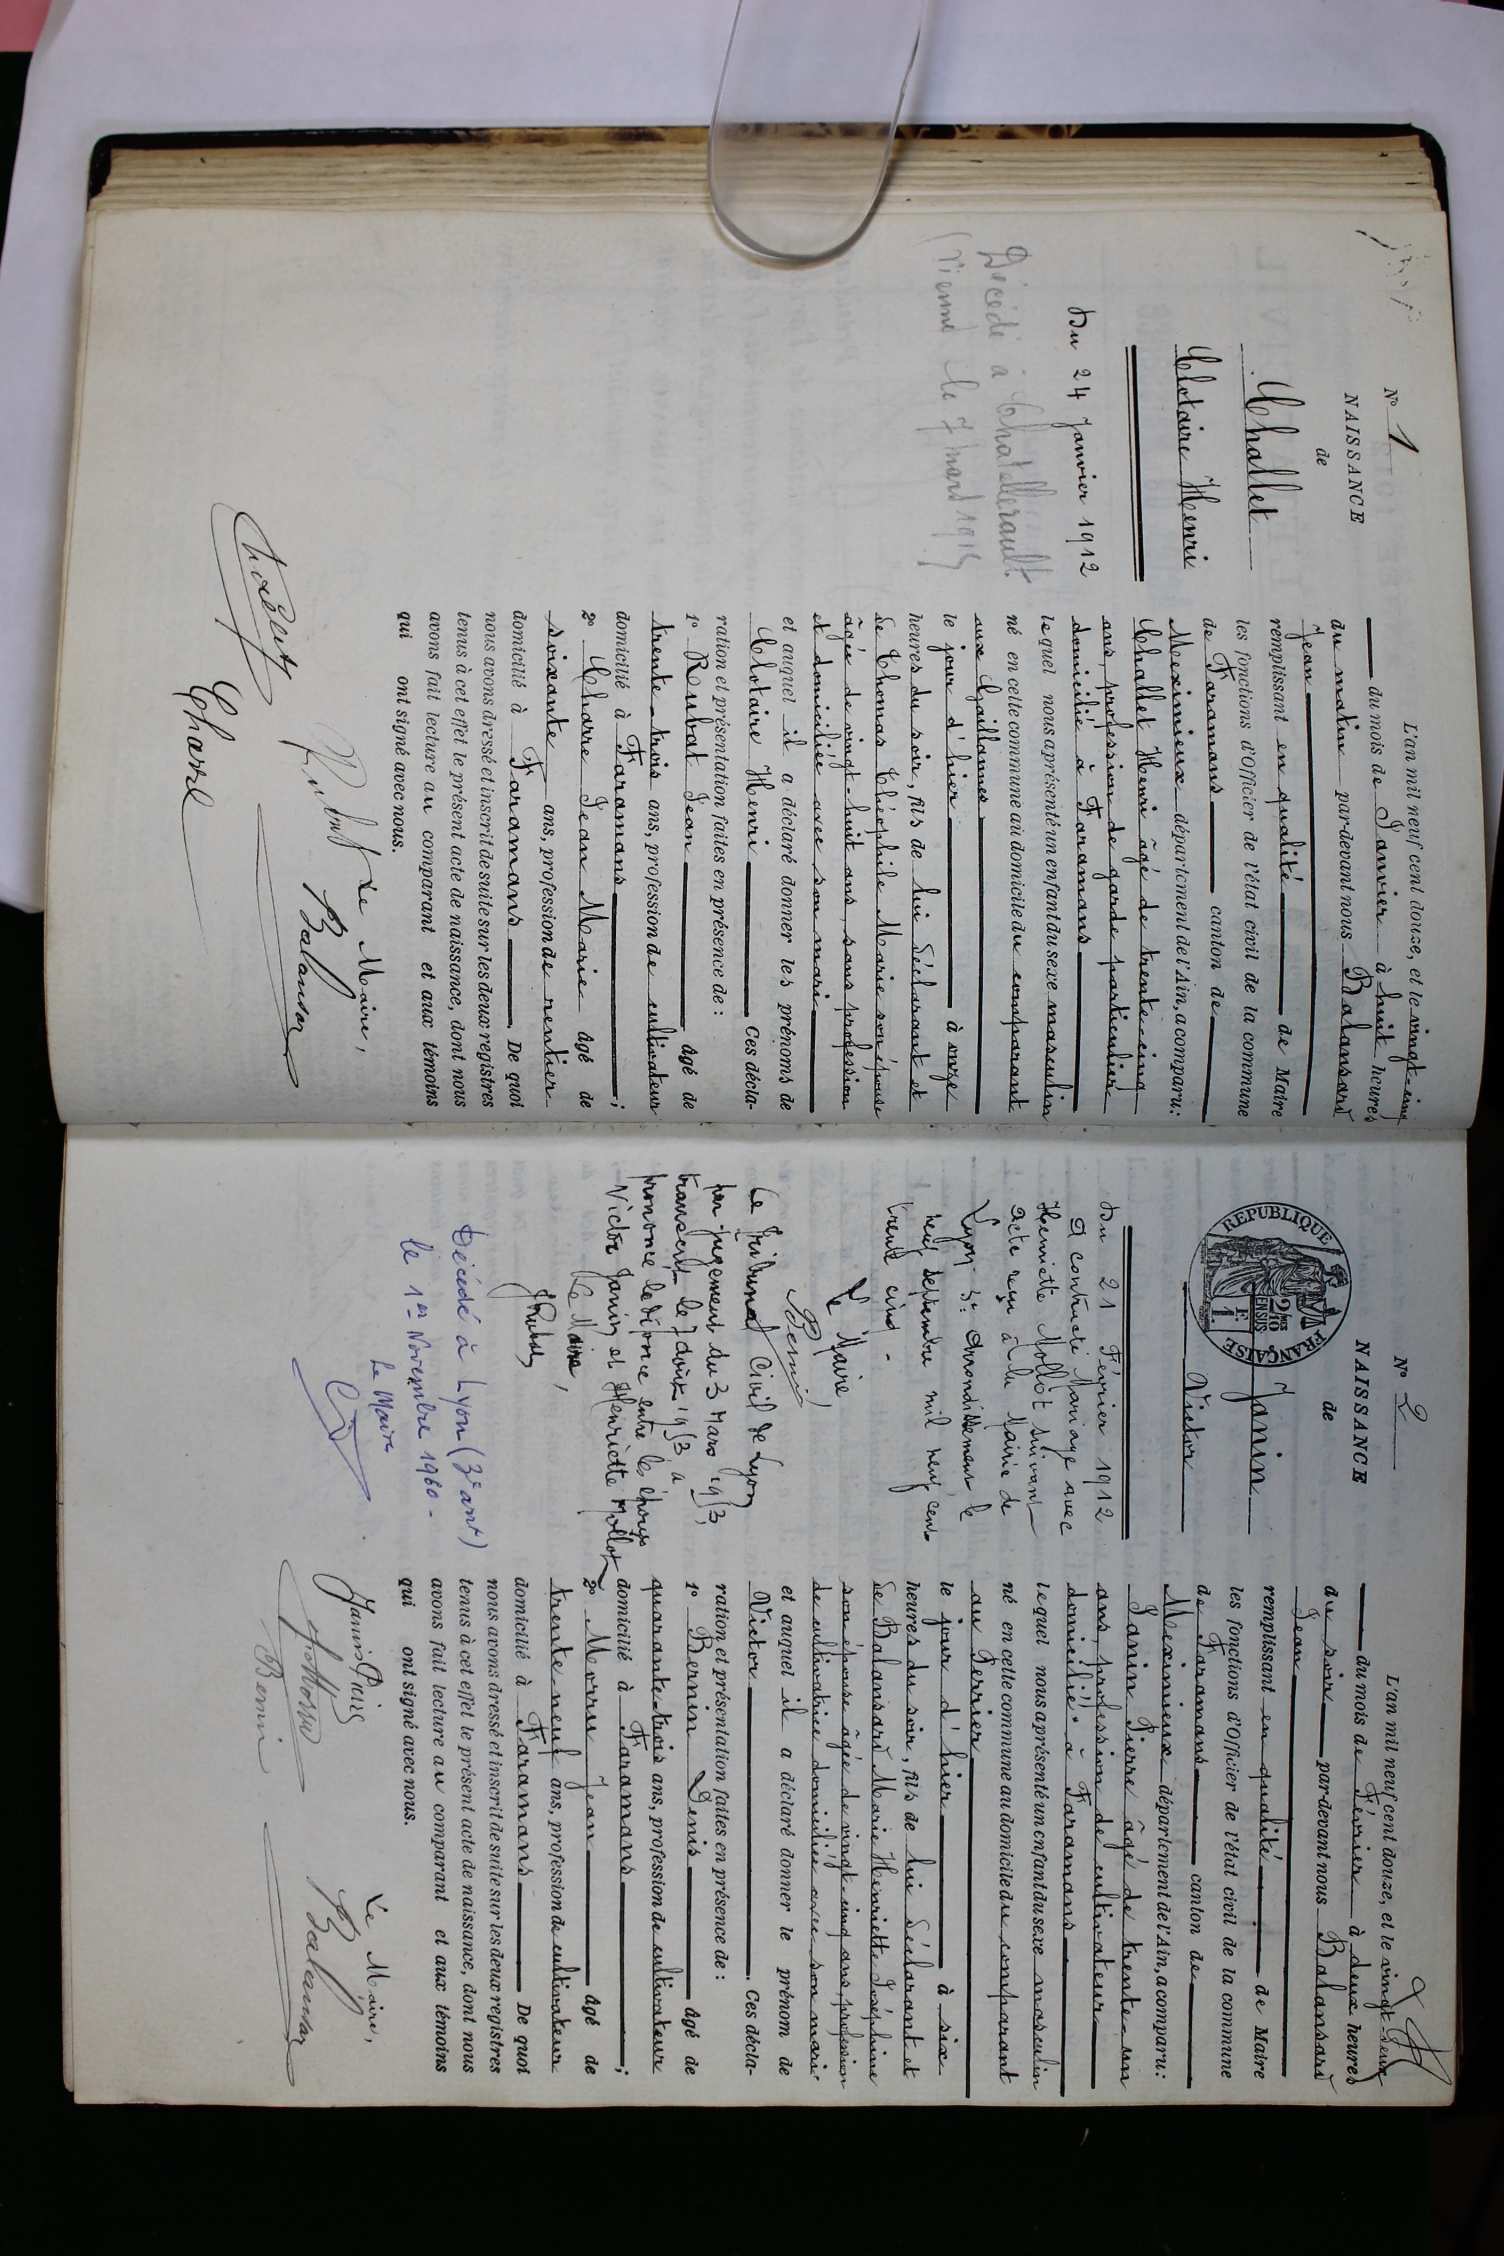 N° 1
NAISSANCE
de
Challet
Clotaire Henri
Du 24 Janvier 1912
Décédé à Chatellerault
(Vienne) le 7 mars 1915
L'an mil neuf cent douze, et le vingt-cinq
du mois de Janvier à huit heures
du matin par-devant nous Balansard
Jean
remplissant en qualité de Maire
les fonctions d'Officier de l'état civil de la commune
de Faramans canton de
Meximieux département de l'Ain, a comparu:
Challet Henri âgé de trente-cinq
ans, profession de garde particulier
domicilié à Faramans
lequel nous a présenté un enfant du sexe masculin
né en cette commune au domicile du comparant
aux Gaillannes
le jour d'hier à onze
heures du soir, fils de lui déclarant et
de Thomas Théophile Marie son épouse
âgée de vingt-huit ans, sans profession
et domiciliée avec son mari
et auquel il a déclaré donner les prénoms de
Clotaire Henri Ces décla-
ration et présentation faites en présence de :
1° Rubat Jean âgé de
trente-trois ans, profession de cultivateur
domicilié à Faramans ;
2° Charre Jean Marie âgé de
soixante ans, profession de rentier
domicilié à Faramans. De quoi
nous avons dressé et inscrit de suite sur les deux registres
tenus à cet effet le présent acte de naissance, dont nous
avons fait lecture au comparant et aux témoins
qui ont signé avec nous.
Le Maire,
Challet Rubat Balansard
Charre
N° 2
NAISSANCE
de
REPUBLIQUE FRANÇAISE
2/10 EN SUS
1 F.
Janin
Victor
Du 21 Février 1912
A contracté Mariage avec
Henriette Mollot suivant
acte reçu à la Mairie de
Lyon 3e arrondissement le
neuf septembre mil neuf cent
trente cinq -
Le Maire,
Bernin
Le Tribunal Civil de Lyon
par jugement du 3 Mars 1953,
transcrit le 7 Août 1953 a
prononcé le divorce entre les époux
Victor Janin et Henriette Mollot
Le Maire,
Décédé à Lyon (3e arrt)
le 1er Novembre 1960 -
Le Maire
L'an mil neuf cent douze, et le vingt-deux
du mois de Février à deux heures
du soir par-devant nous Balansard
Jean
remplissant en qualité de Maire
les fonctions d'Officier de l'état civil de la commune
de Faramans canton de
Meximieux département de l'Ain, a comparu:
Janin Pierre âgé de trente-un
ans, profession de cultivateur
domicilié à Faramans
lequel nous a présenté un enfant du sexe masculin
né en cette commune au domicile du comparant
au Perrier
le jour d'hier à six
heures du soir, fils de lui déclarant et
de Balansard Marie Henriette Joséphine
son épouse âgée de vingt-cinq ans, profession
de cultivatrice domiciliée avec son mari
et auquel il a déclaré donner le prénom de
Victor Ces décla-
ration et présentation faites en présence de :
1° Bernin Denis âgé de
quarante-trois ans, profession de cultivateur
domicilié à Faramans ;
2° Morru Jean âgé de
trente-neuf ans, profession de cultivateur
domicilié à Faramans De quoi
nous avons dressé et inscrit de suite sur les deux registres
tenus à cet effet le présent acte de naissance, dont nous
avons fait lecture au comparant et aux témoins
qui ont signé avec nous.
Le Maire,
Janin Balansard
Bernin